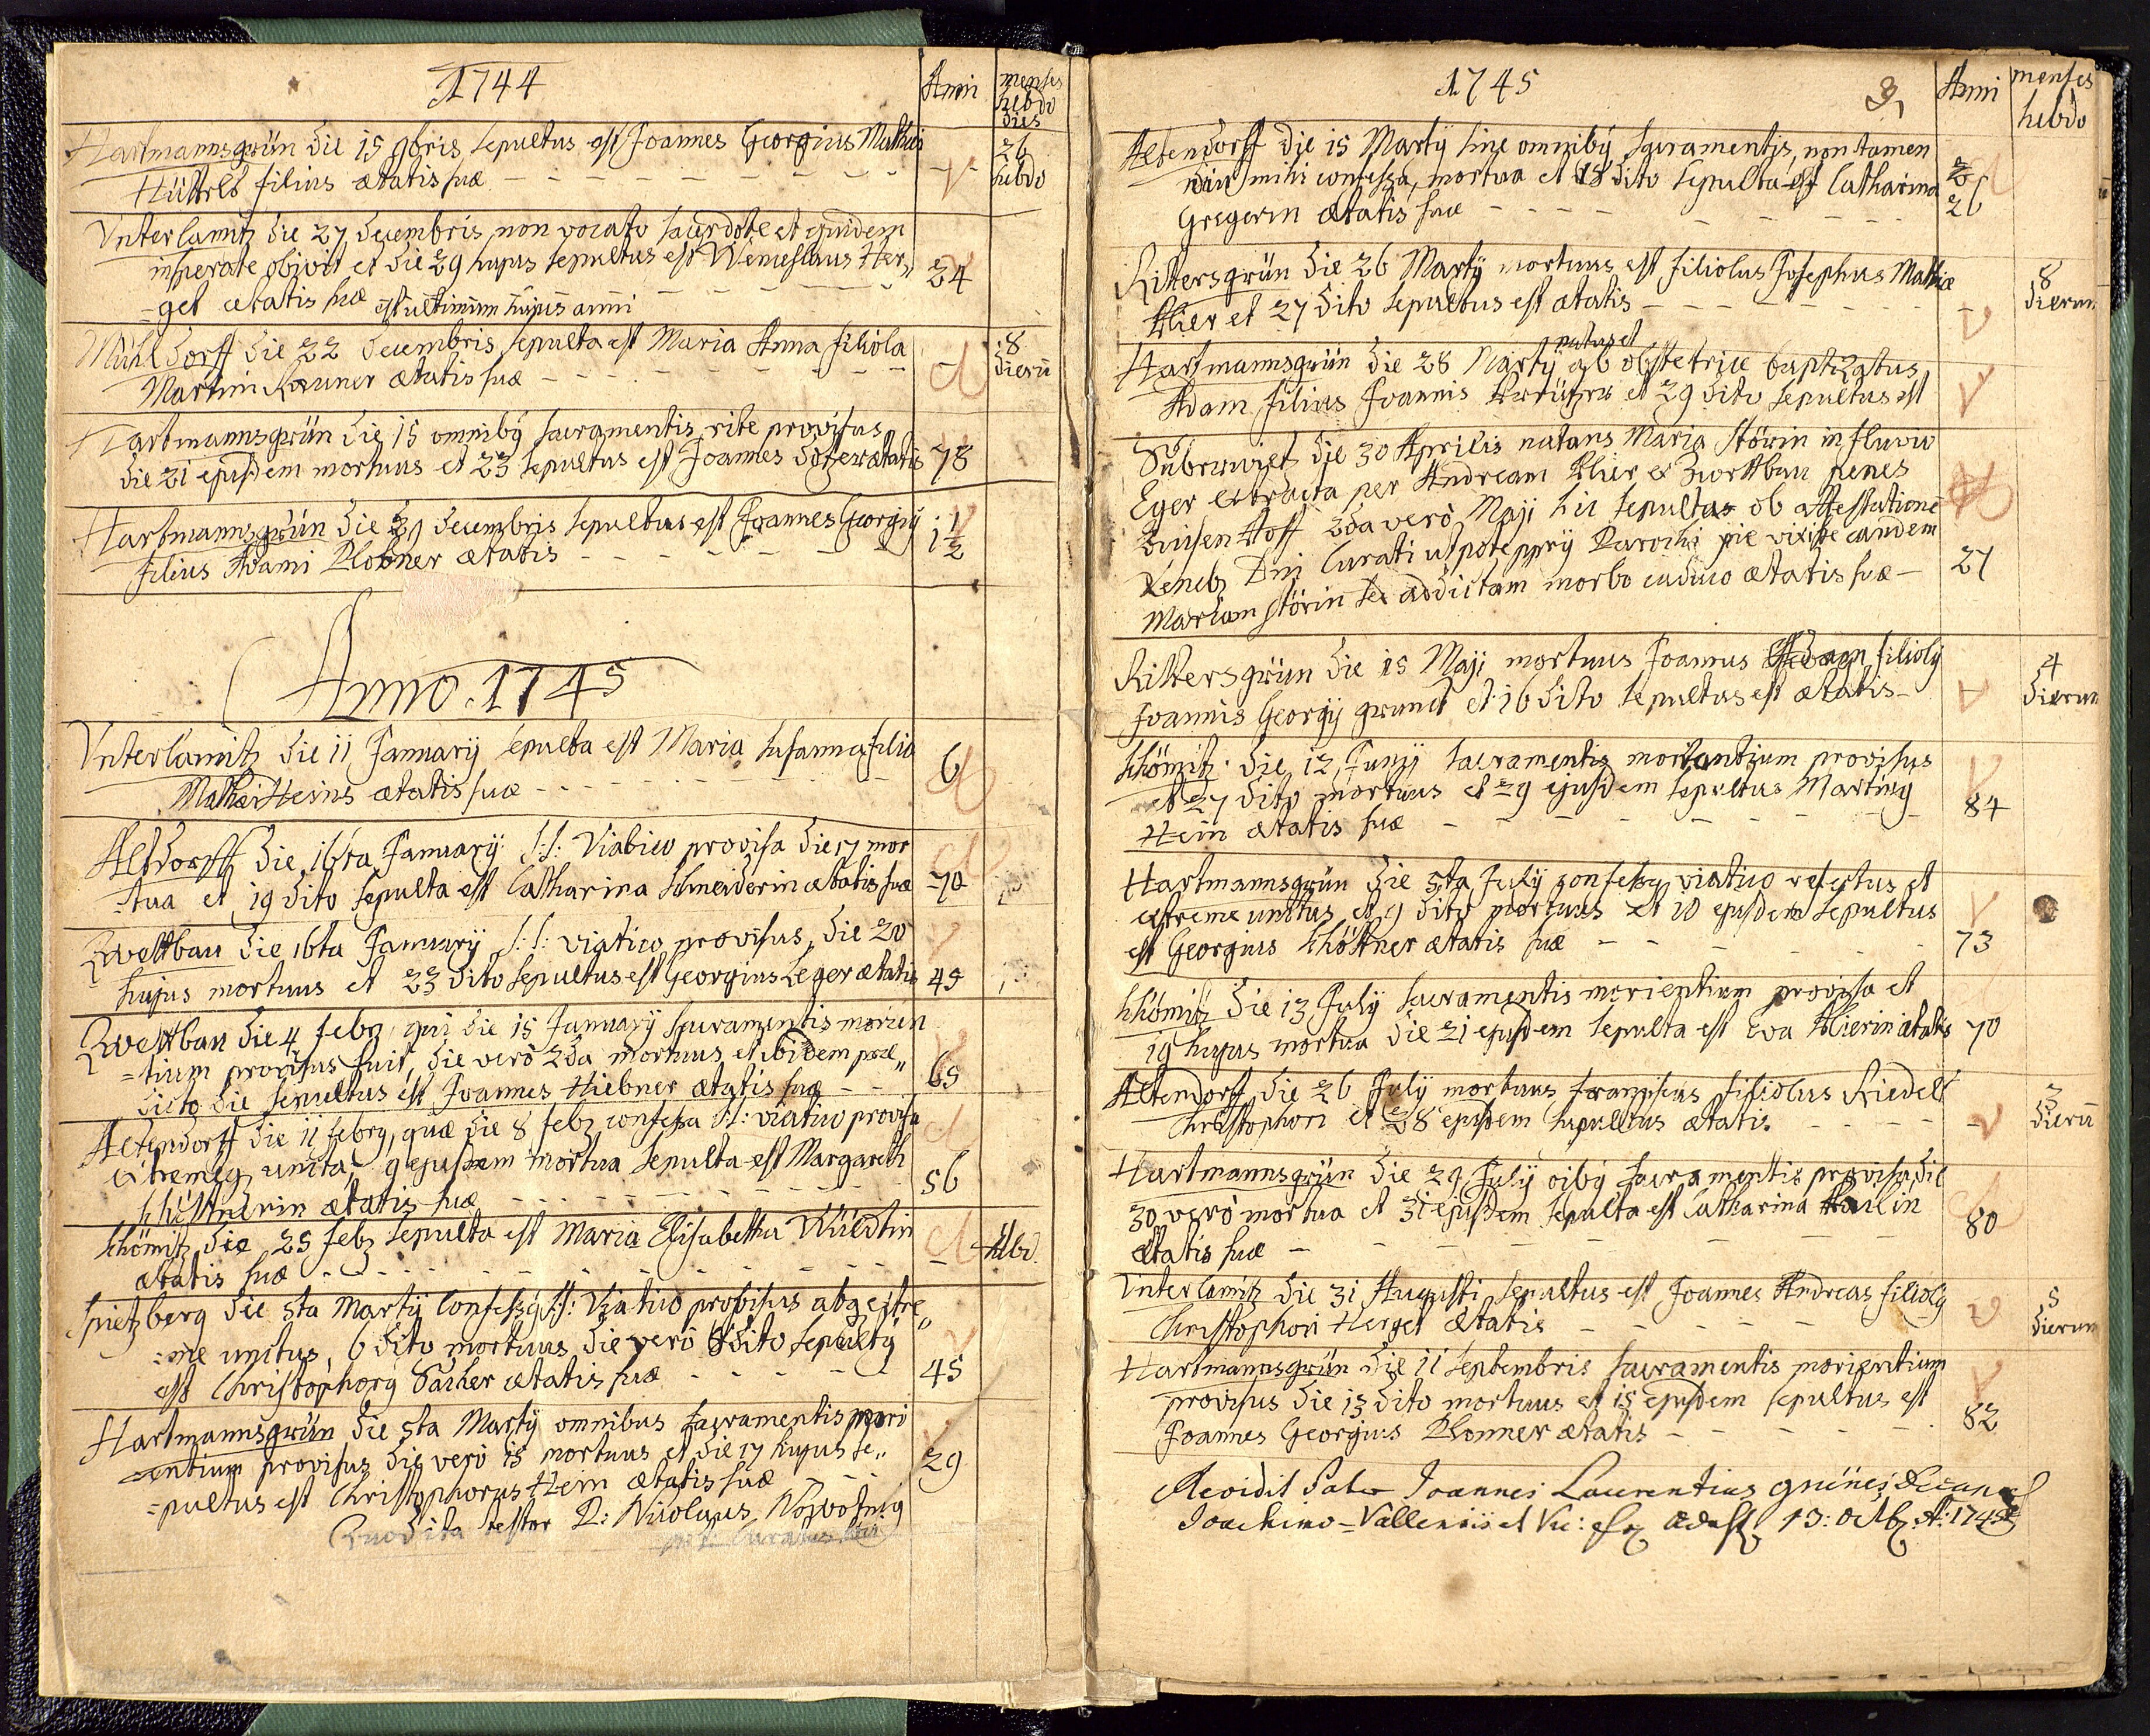 1744
Anni
menses
hebdo
dies
Hartmannsgrün die 15 9bris sepultus est Joannes Georgius Mathæi
26
hebdo
filius ætatis suæ
Unterlamitz die 27 decembris non vocato sacerdote et quidem
insperate obivit et die 29 hujus sepultus est Wenceslaus Her„
24
=get ætatis suæ est ultimum hujus anni
Mühldorff die 22 decembris sepulta est Maria Anna filiola
8
dierū
Martini ætatis suæ
Hartmannsgrün die 15 omnibg sacramentis rite provisus
die 21 ejusdem mortuus et 23 sepultus est Joannes ætatis
78
Hartmannsgrün die 31 decembris sepultus est Joannes Georgig
1½
filius Adami Plobner ætatis
Anno 1745
Unterlamitz die 11 January sepulta est Maria Susanna filia
6
Mathæi Heins ætatis suæ
Altdorff die 16ta January S:S: Viatico provisa die 17 mor
=tua et 19 dito sepulta est Catharina Schneiderin ætatis suæ
70
Zwettbau die 16ta January S:S: viatico provisus, die 20
hujus mortuus et 23 dito sepultus est Georgius Leger ætatis
45
Zwettbau die 4 febr, qui die 15 January Sacramentis morien
=tium provisus fuit, die verò 2da mortuus et ibidem præ„
dicto die sepultus est Joannes Hiebner ætatis suæ
65
Altendorff die 11 febry, quæ die 8 feb confessa SS: viatico provisa
extremeq uncta, 9 ejusdem mortua sepulta est Margareth
ætatis suæ
56
Schömitz die 25 feb sepulta est Maria Elisabetha
hebd.
ætatis suæ
Spitzberg die 5ta Martÿ Confessg SS: Viatico provisus atq extre„
=me unctus, 6 dito mortuus, die verò 8 dito sepultg
est Christophorg ætatis suæ
45
Hartmannsgrün die 5ta Martÿ omnibus sacramentis mori
=entium provisus die verò 15 mortuus et die 17 hujus se„
29
=pultus est Christophorus Hein ætatis suæ
Quod ita testor P: Nicolaus Nowotnig
Curatus
1745
3
Anni
menses
hebdo
Altendorff die 15 Martÿ sine omnibg sacramentis, non tamen
diu mihi confessa, mortua et 18 dito sepulta est Catharina
26
Gregerin ætatis suæ
Rittersgrün die 26 Martÿ mortuus est filiolus Josephus Mathiæ
8
dierum
Hier et 27 dito sepultus est ætatis
natus et
Hartmannsgrün die 28 Martÿ ab obstetrice baptizatus
Adam filius Joannis et 29 dito sepultus est
die 30 Aprilis natans Maria Störin in fluvio
Eger extracta per Andream Hier ex Zwettbau penes
Hoff 2da verò Maji hic sepulta ob attestationē
Dni Curati utpote pprÿ Parochi pie vixisse eandem
Mariam Störin sed addictam morbo caduco ætatis suæ
27
Rittersgrün die 15 Maji mortuus Joannes Adam filiolg
4
dierum
Joannis Georgÿ et 16 dito sepultus est ætatis
Schömitz die 12 Junÿ sacramentis morientium provisus
et 27 dito mortuus et 29 ejusdem sepultus Marting
84
Hein ætatis suæ
Hartmannsgrün die 5ta Julÿ confessg viatico refectus et
extreme unctus, et 9 dito mortuus et 10 ejusdem sepultus
est Georgius Schöttner ætatis suæ
73
Schömitz die 13 Julÿ sacramentis morientium provisa et
19 hujus mortua die 21 ejusdem sepulta est Eva Hierin ætatis
70
Altendorff die 26 Julÿ mortuus Franziscus filiolus Riedels
3
dierū
Christophori et 28 ejusdem sepultus ætatis
Hartmannsgrün die 29 Julÿ oibg sacramentis provisa, die
30 verò mortua et 31 ejusdem sepulta est Catharina
80
ætatis suæ
Unterlamitz die 31 Augusti sepultus est Joannes Andreas filiolg
5
dierum
Christophori Herget ætatis
Hartmannsgrün die 11 Septembris sacramentis morientium
provisus die 13 dito mortuus et 15 ejusdem sepultus est
Joannes Georgius Plonner ætatis
82
Revidit Pater Joannes Laurentius
Joachimo=Vallensis et Vic: 13: 8tb A: 1745